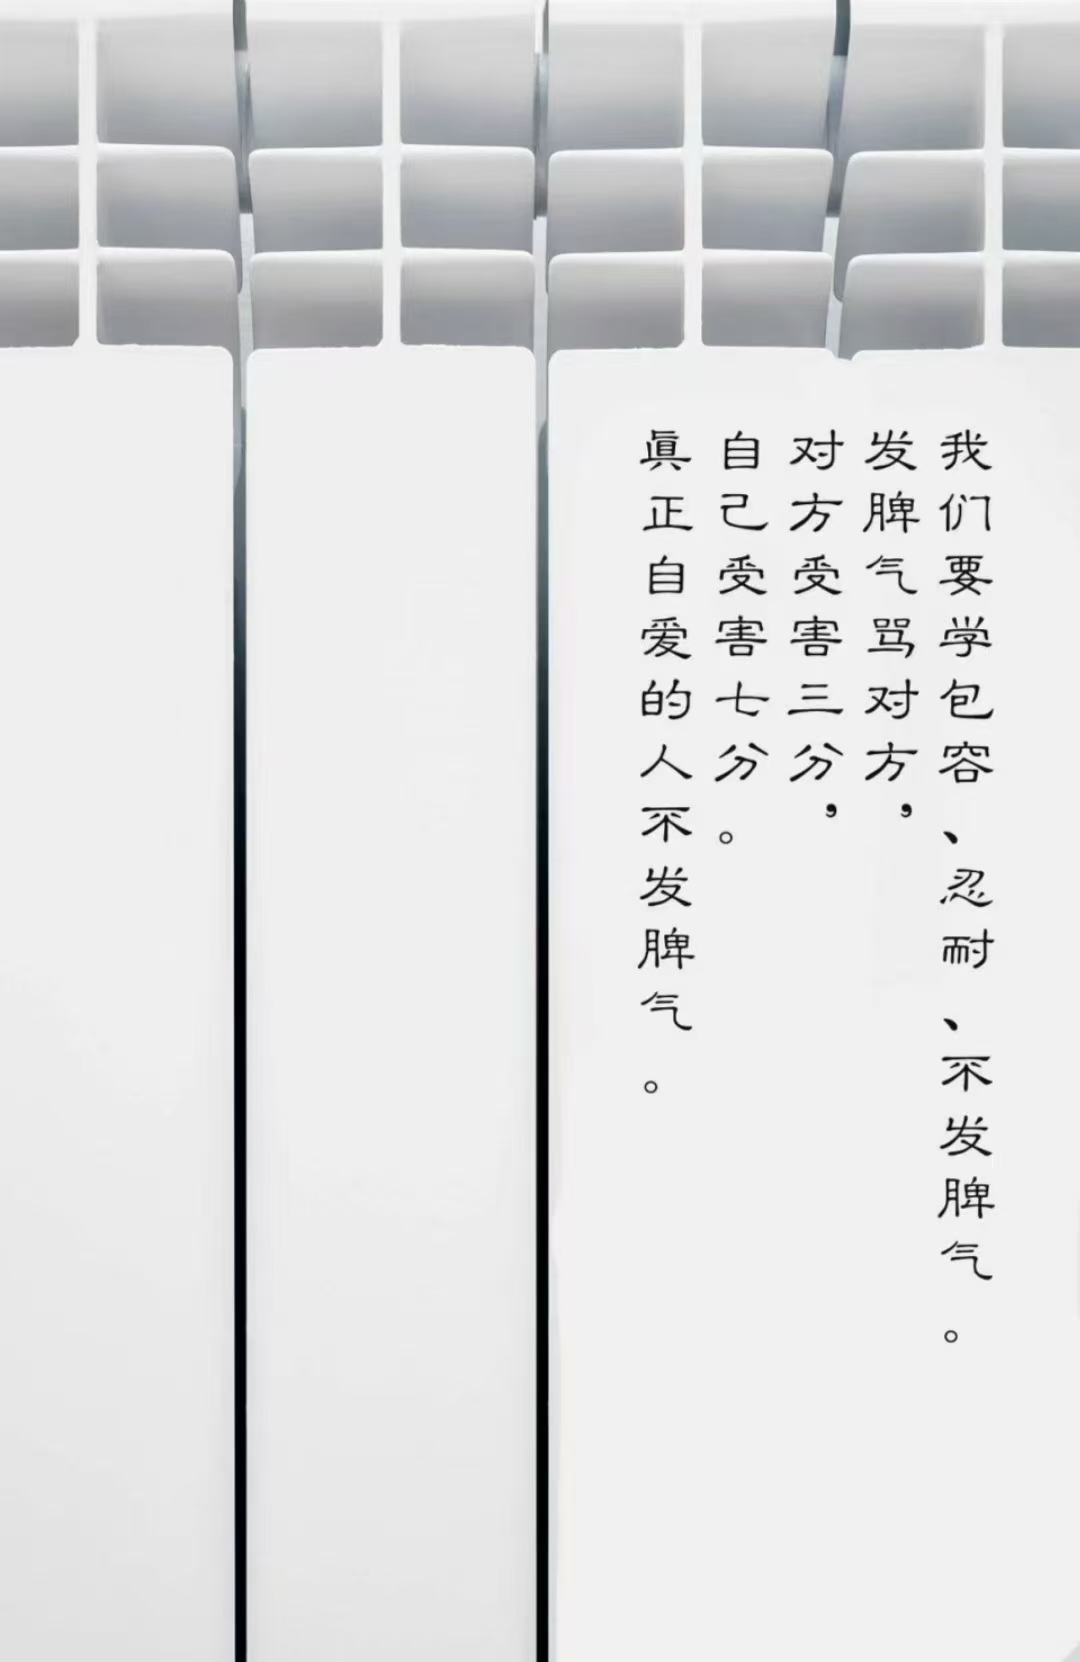 我们要学包容、忍耐、不发脾气。
发脾气骂对方，
对方受害三分，
自己受害七分。
真正自爱的人不发脾气。